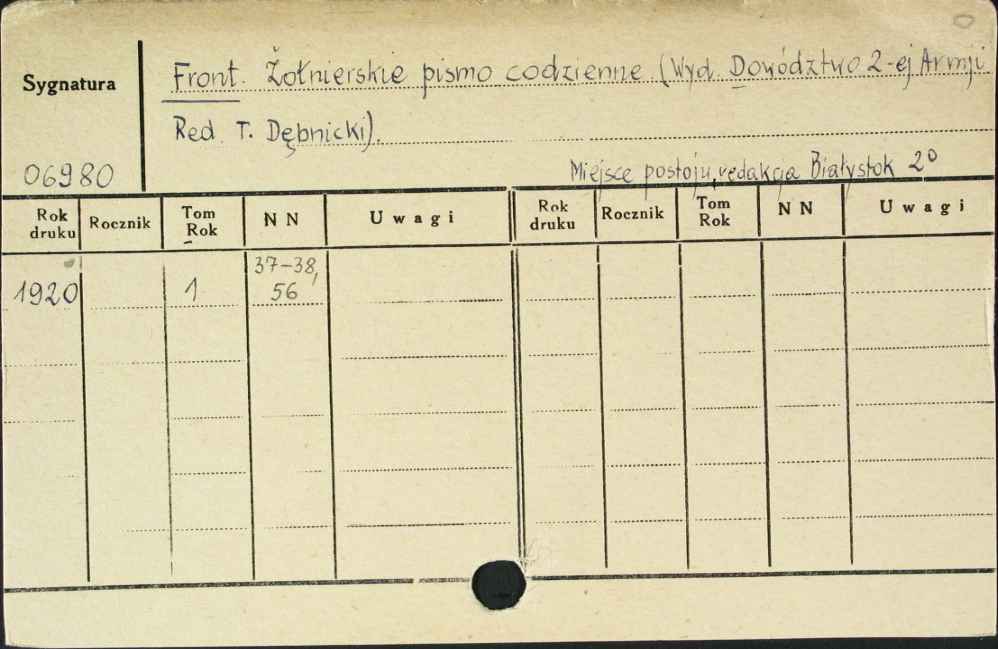 Sygnatura
Front. Żołnierskie pismo codzienne (Wyd. Dowództwo 2-ej Armji
Red. T. Dębnicki).
06980
Miejsce postoju, redakcja Białystok 2°
Rok druku Rocznik Tom Rok NN Uwagi Rok druku Rocznik Tom Rok NN Uwagi
1920 1 37-38, 56